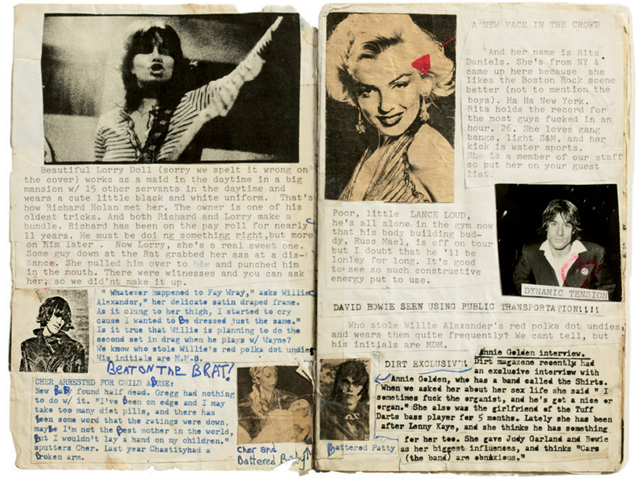 Beautiful Lorry Doll (sorry we spelt it wrong on
the cover) works as a maid in the daytime in a big
mansion w/ 15 other servants in the daytime and
wears a cute little black and white uniform. That's
how Richard Nolan met her. The owner is one of his
oldest tricks. And both Richard and Lorry make a
bundle. Richard has been on the pay roll for nearly
11 years. He must be doing something right, but more
on him later. Now Lorry, she's a real sweet one.
Some guy down at the Rat grabbed her ass at a dis-
tance. She pulled him over to her and punched him
in the mouth. There were witnesses and you can ask
her, so we did'nt make it up.
"Whatever happened to Fay Wray," asks Willie
Alexandor," her delicate satin draped frame.
As it clung to her thigh, I started to cry
cause I wanted to be dressed just the same."
Is it true that Willie is planning to do the
second set in drag when he plays w/ Wayne?
We know who stole Willie's red polka dot undies
His initials are M.M.B.
BEAT ON THE BRAT!
CHER ARRESTED FOR CHILD ABUSE:
New BaBy found half dead. Gregg had nothing
to do w/ it. "I've been on edge and I may
take too many diet pills, and there has
been some word that the ratings were down,
maybe I'm not the Best mother in the world,
But I wouldn't lay a hand on my children."
sputters Cher. Last year Chastityhad a
Broken arm.
Cher and
Battered Baby
A NEW FACE IN THE CROWD
And her name is Rita
Daniels. She's from NY &
came up here because she
likes the Boston Rock scene
better (not to mention the
boys). Ha Ha New York.
Rita holds the record for
the most guys fucked in an
hour. 26. She loves gang
bangs, light S&M, and her
kick is water sports.
She is a member of our staff
so put her on your guest
list.
Poor, little LANCE LOUD,
he's all alone in the gym now
that his body building bud-
dy, Russ Mael, is off on tour
but I doubt that he'll be
lonley for long. It's good
to see so much constructive
energy put to use.
DYNAMIC TENSION
DAVID BOWIE SEEN USING PUBLIC TRANSPORTATION!!!!
Who stole Willie Alaxander's red polka dot undies
and wears them quite frequently? We cant tell, but
his initials are MOM.
DIRT EXCLUSIV'L
Annie Golden interview.
Dirt magazine recently had
an exclusive interview with
Annie Golden, who has a band called the Shirts.
When we asked her about her sex life she said " I
sometimes fuck the organist, and he's got a nice er
organ." She also was the girlfriend of the Tuff
Darts bass player for 5 months. Lately she has been
after Lenny Kaye, and she thinks he has something
for her too. She gave Judy Garland and Bowie
as her biggest influences, and thinks "Cars
(the band) are obnixious."
Battered Patty